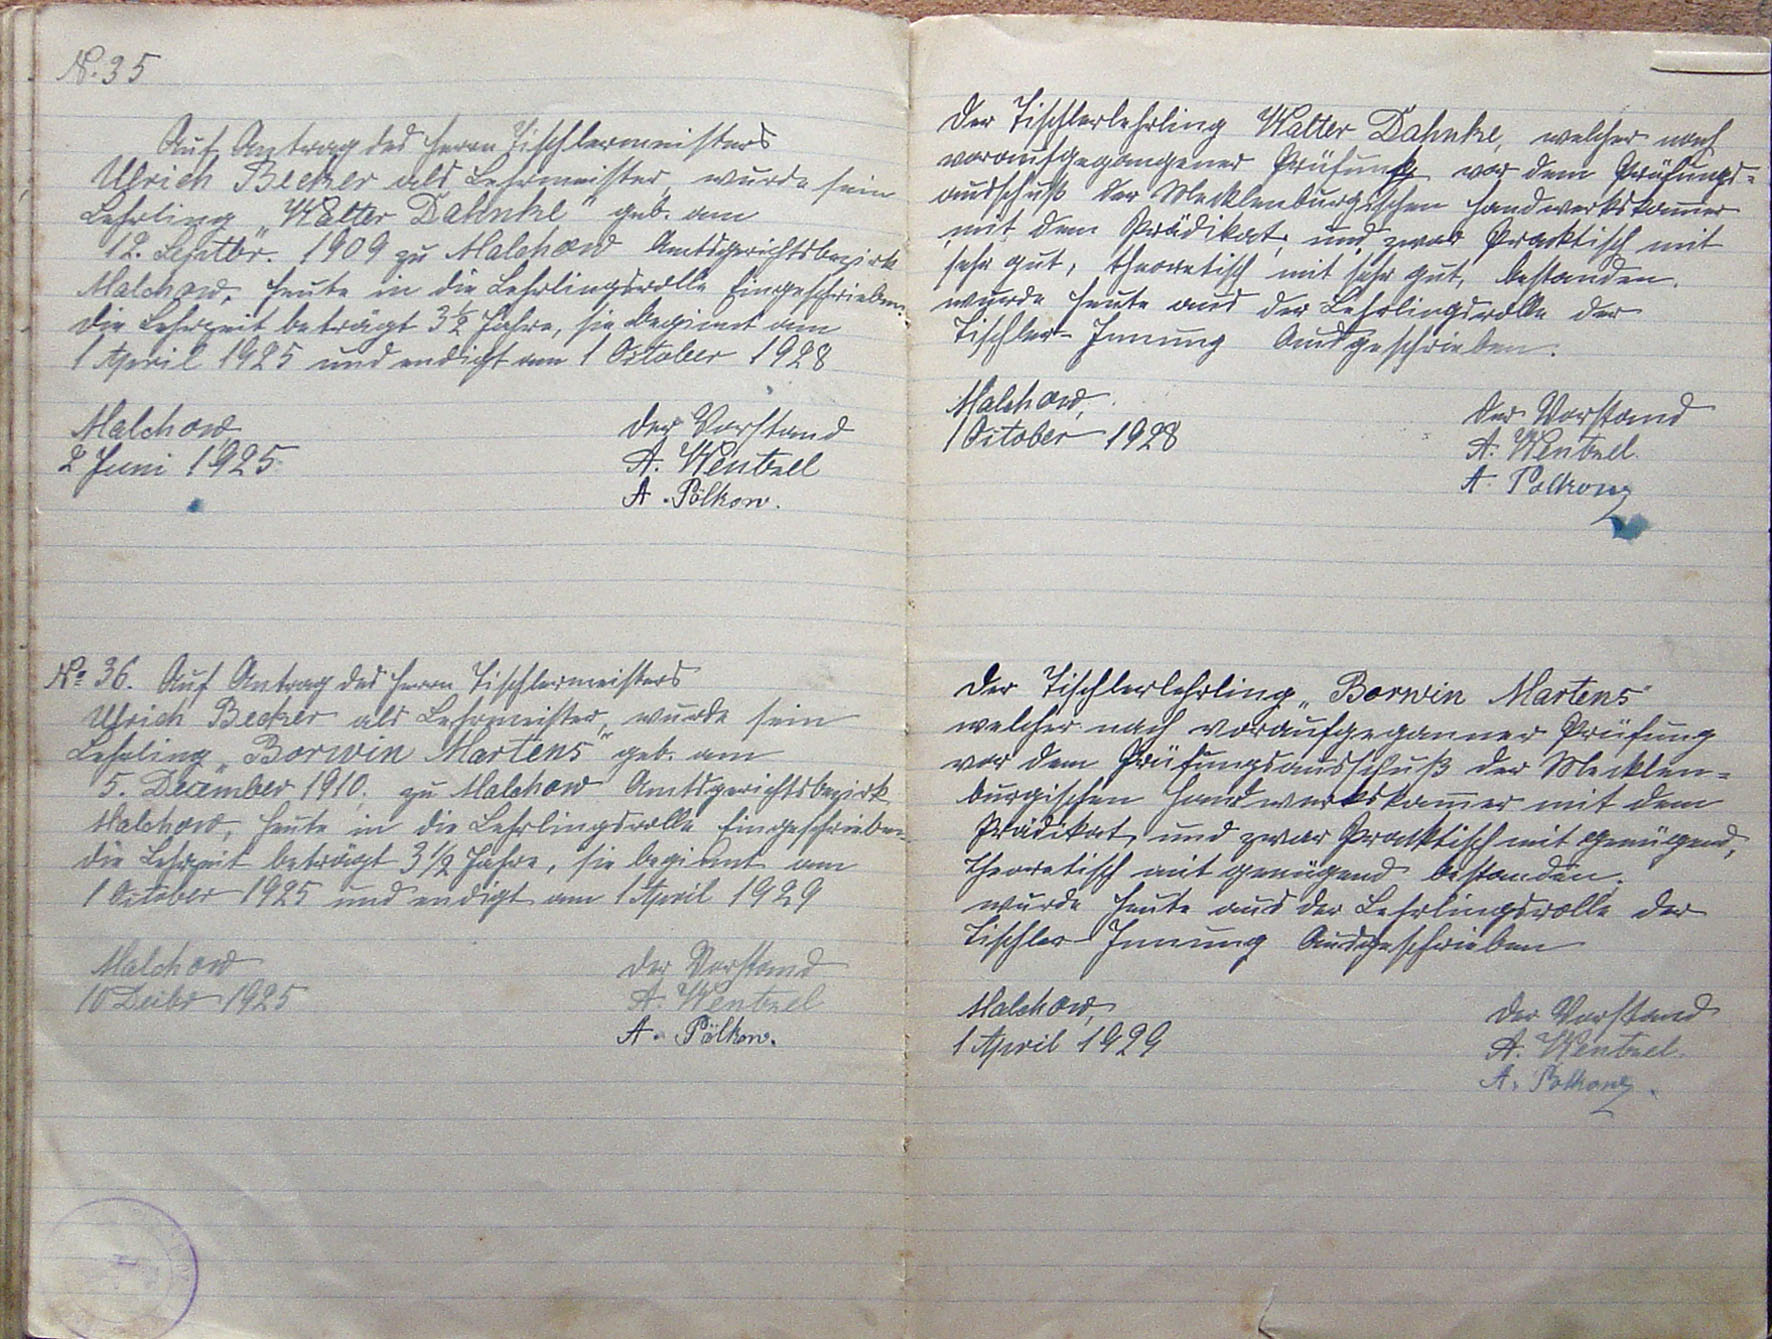 No. 35
Auf Antrag des Herrn Tischlermeisters
Ulrich Becker als Lehrmeister, wurde sein
Lehrling „Walter Dahnke" geb. am
12. Septbr. 1909 zu Malchow Amtsgerichtsbezirk
Malchow, heute in die Lehrlingsrolle Eingeschrieben.
die Lehrzeit beträgt 3½ Jahre, sie beginnt am
1 April 1925 und endigt am 1 October 1928
Malchow
2 Juni 1925
der Vorstand
A. Wentzell
A. Pölkow.
No 36. Auf Antrag des Herrn Tischlermeisters
Ulrich Becker als Lehrmeister, wurde sein
Lehrling „Borwin Martens" geb. am
5. December 1910, zu Malchow Amtsgerichtsbezirk
Malchow, heute in die Lehrlingsrolle Eingeschrieben
die Lehrzeit beträgt 3 1/2 Jahre, sie beginnt am
1 October 1925 und endigt am 1 April 1929
Malchow
10 1925
der Vorstand
A. Wentzel
A. Pölkow.
Der Tischlerlehrling Walter Dahnke, welcher nach
voraufgegangener Prüfung vor dem Prüfungs-
ausschuß der Mecklenburgischen Handwerkskammer
mit dem Prädikat, und zwar Praktisch mit
sehr gut, theoretisch mit sehr gut, bestanden.
wurde heute aus der Lehrlingsrolle der
Tischler-Innung Ausgeschrieben.
Malchow,
1 October 1928
der Vorstand
A. Wentzel
A. Pölkow
Der Tischlerlehrling „Borwin Martens"
welcher nach voraufgeganner Prüfung
vor dem Prüfungsausschuß der Mecklen-
burgischen Handwerkskammer mit dem
Prädikat, und zwar Pracktisch mit genügend,
theoretisch mit genügend bestanden.
wurde heute aus der Lehrlingsrolle der
Tischler-Innung Ausgeschrieben
Malchow,
1 April 1929
der Vorstand
A. Wentzel.
A. Pölkow.